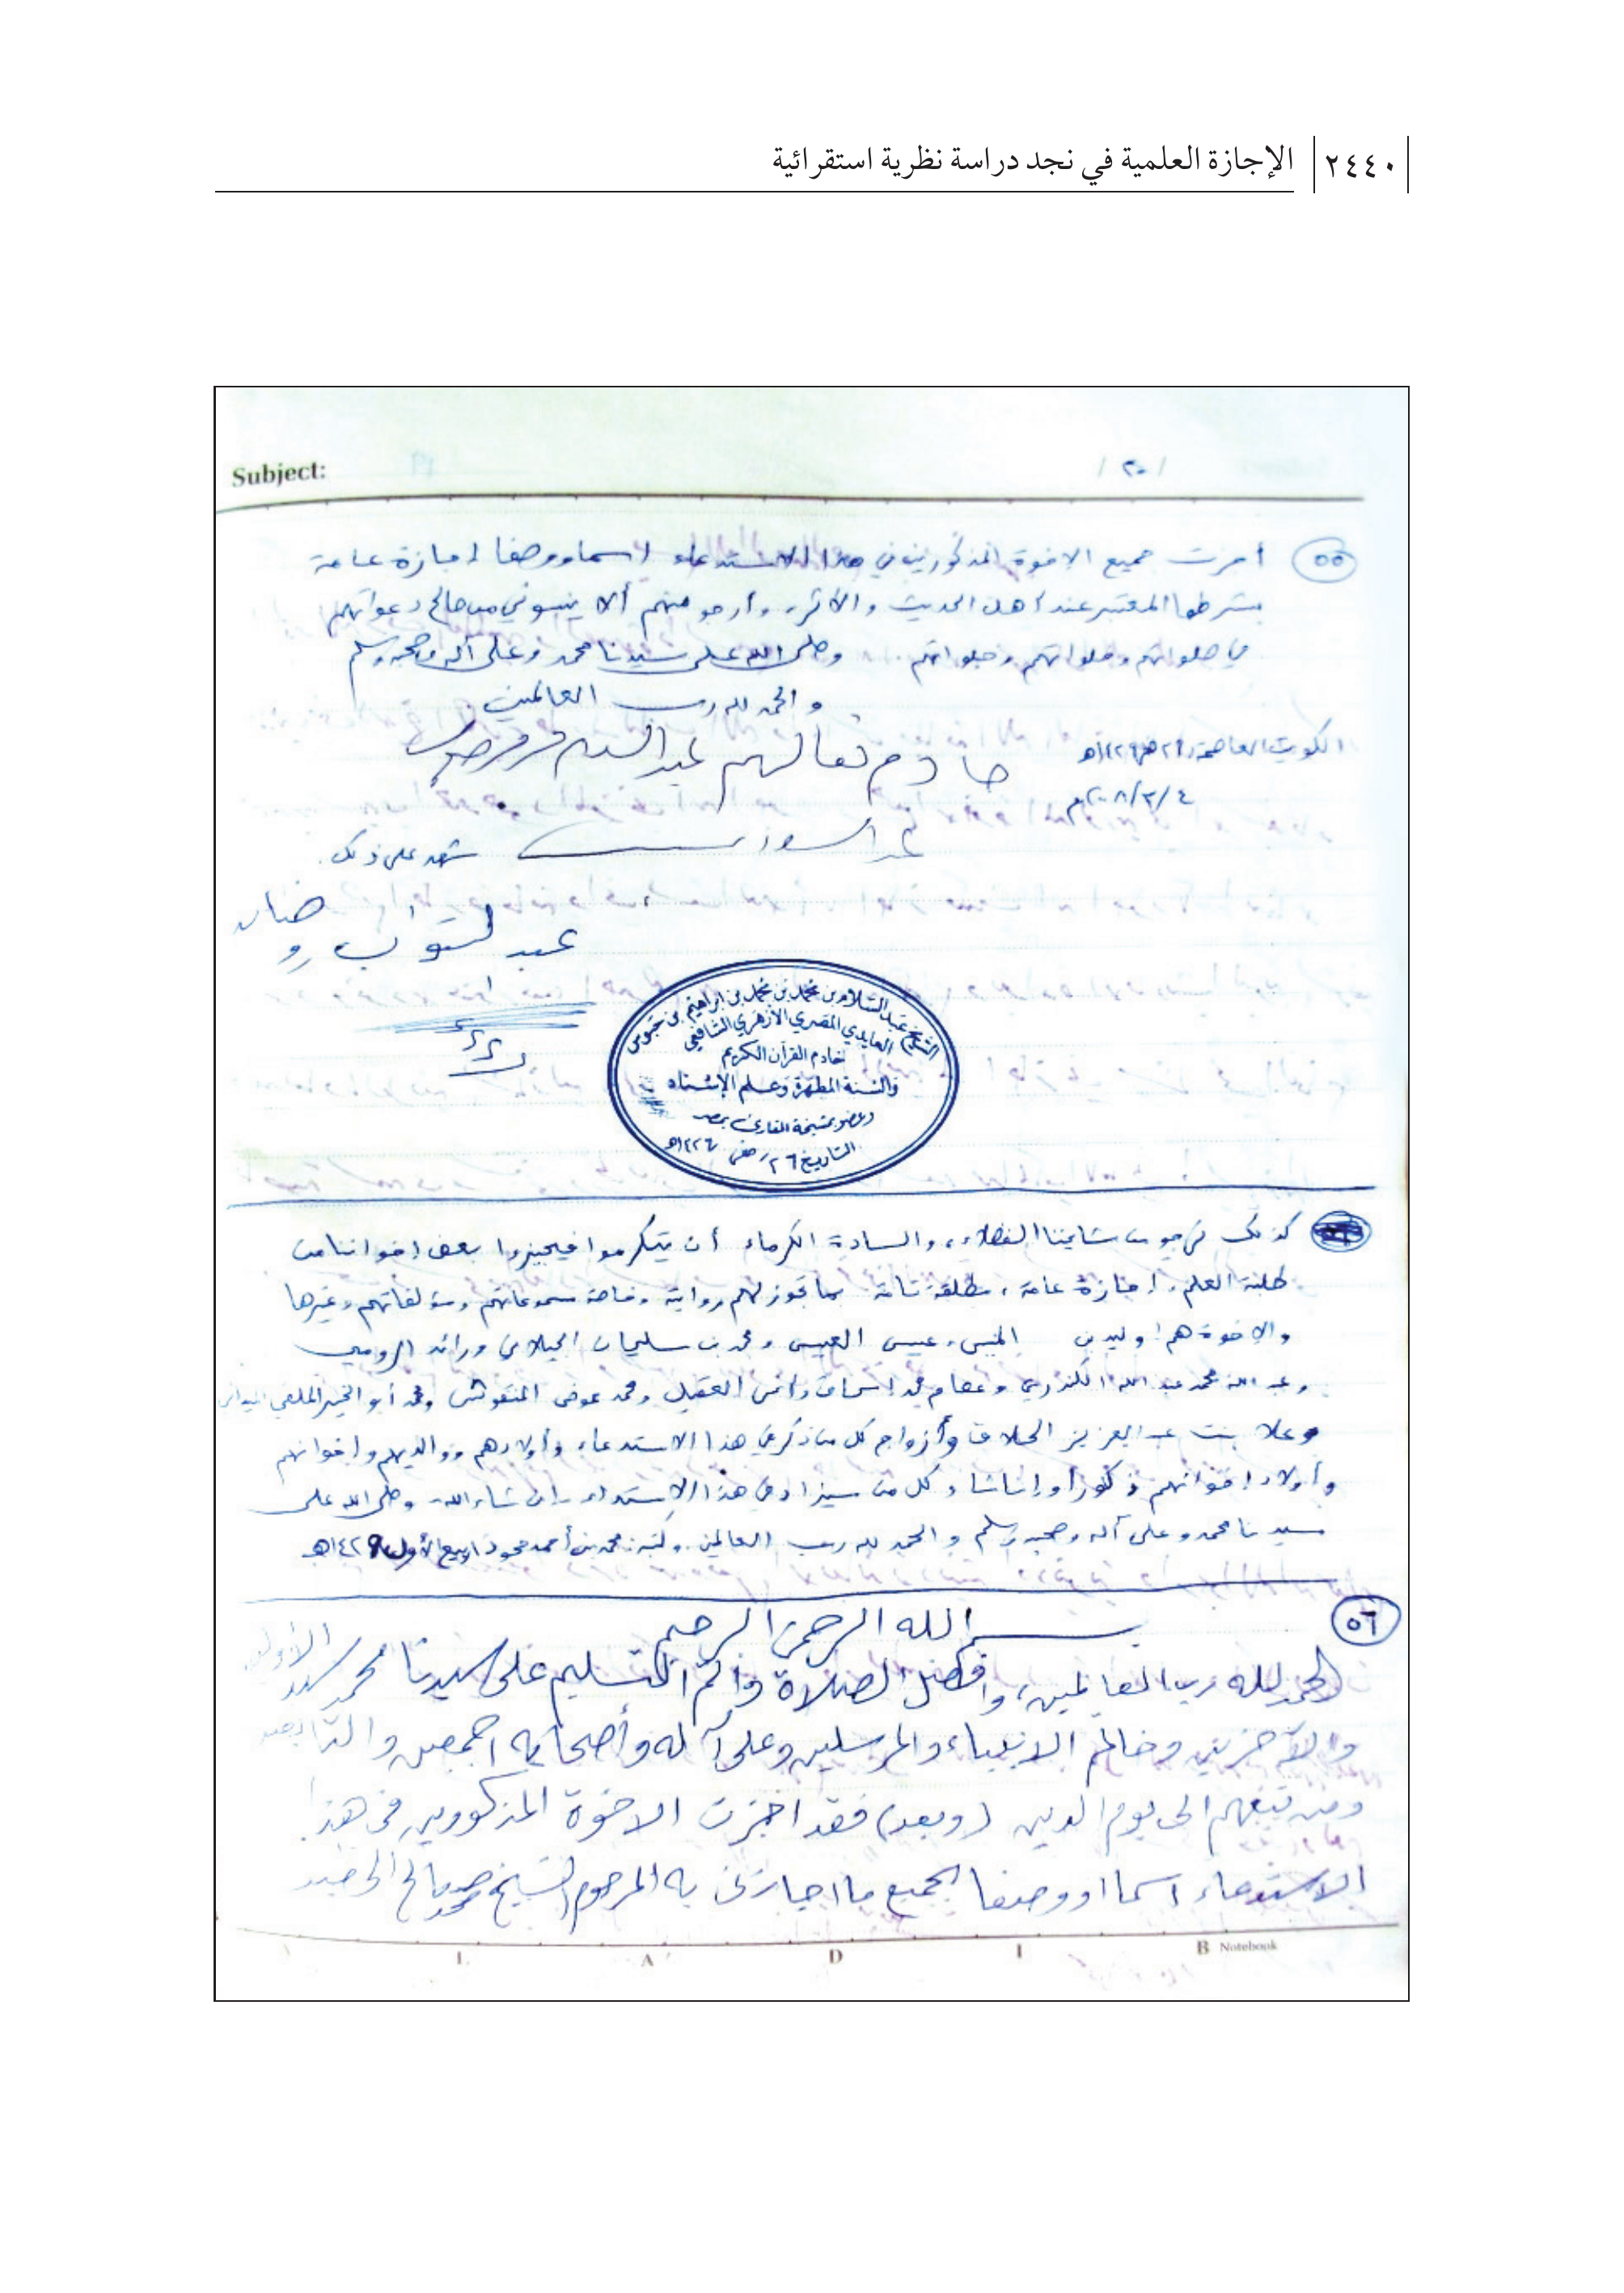 ٢٤٤٠ الإجازة العلمية في نجد دراسة نظرية استقرائية
Subject:
/ ٢٠ /
٥٥ أجزت جميع الإخوة المذكورين في هذا الاستدعاء اسما ووصفا إجازة عامة
بشرطها المعتبر عند أهل الحديث والأثر، وأرجو منهم ألا ينسوني من صالح دعواتهم
في صلواتهم وخلواتهم وجلواتهم وصلى الله على سيدنا محمد وعلى آله وصحبه وسلم
والحمد لله رب العالمين
الكويت العاصمة
خادم نعالهم عبد السلام
شهد على ذلك
عبد التواب رمضان
الشيخ عبد السلام بن محمد بن محمد بن إبراهيم بن حبوس
العايدي المصري الأزهري الشافعي
خادم القرآن الكريم
والسنة المطهرة وعلم الإسناد
وعضو مشيخة المقارئ بمصر
التاريخ ٢٦ / صفر ١٤٢٦هـ
كذلك نرجو من مشايخنا الفضلاء، والسادة الكرماء أن يتكرموا فيجيزوا بعض إخواننا من
طلبة العلم، إجازة عامة، مطلقة تامة بما تجوز لهم رواية وخاصة مسموعاتهم ومؤلفاتهم وغيرها
والإخوة هم: وليد بن عيسى العيسى ومحمد بن سليمان الجيلاني ورائد الرومي
وعبد الله محمد عبد الله الكندري وعصام محمد إسحاق وأنس العقيل ومحمد عوض المنقوش ومحمد أبو الخير
وعلا بنت عبد العزيز الحلاق وأزواج كل من ذكر في هذا الاستدعاء وأولادهم ووالديهم وإخوانهم
وأولاد إخوانهم ذكورا وإناثا، وكل من سيزاد في هذا الاستدعاء إن شاء الله وصلى الله على
سيدنا محمد وعلى آله وصحبه وسلم والحمد لله رب العالمين. وكتبه: محمد بن أحمد محمود ربيع الأول ١٤٢٩هـ
٥٦ بسم الله الرحمن الرحيم
الحمد لله رب العالمين، وأفضل الصلاة وأتم التسليم على سيدنا محمد سيد الأولين
والآخرين وخاتم الأنبياء والمرسلين وعلى آله وأصحابه أجمعين والتابعين
ومن تبعهم إلى يوم الدين (وبعد) فقد أجزت الإخوة المذكورين في هذا
الاستدعاء اسما ووصفا بجميع ما أجازني به المرحوم الشيخ
L A D I B Notebook